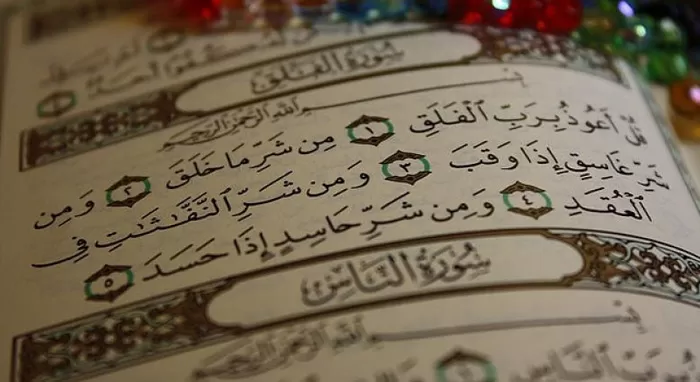 كُفُوًا أَحَدٌ
سُورَةُ الفَلَقِ
بِسْمِ اللَّهِ الرَّحْمَٰنِ الرَّحِيمِ
قُلْ أَعُوذُ بِرَبِّ ٱلْفَلَقِ ١ مِن شَرِّ مَا خَلَقَ ٢ وَمِن
شَرِّ غَاسِقٍ إِذَا وَقَبَ ٣ وَمِن شَرِّ ٱلنَّفَّٰثَٰتِ فِى
ٱلْعُقَدِ ٤ وَمِن شَرِّ حَاسِدٍ إِذَا حَسَدَ ٥
سُورَةُ النَّاسِ
بِسْمِ اللَّهِ الرَّحْمَٰنِ الرَّحِيمِ
بِرَبِّ ٱلنَّاسِ ١